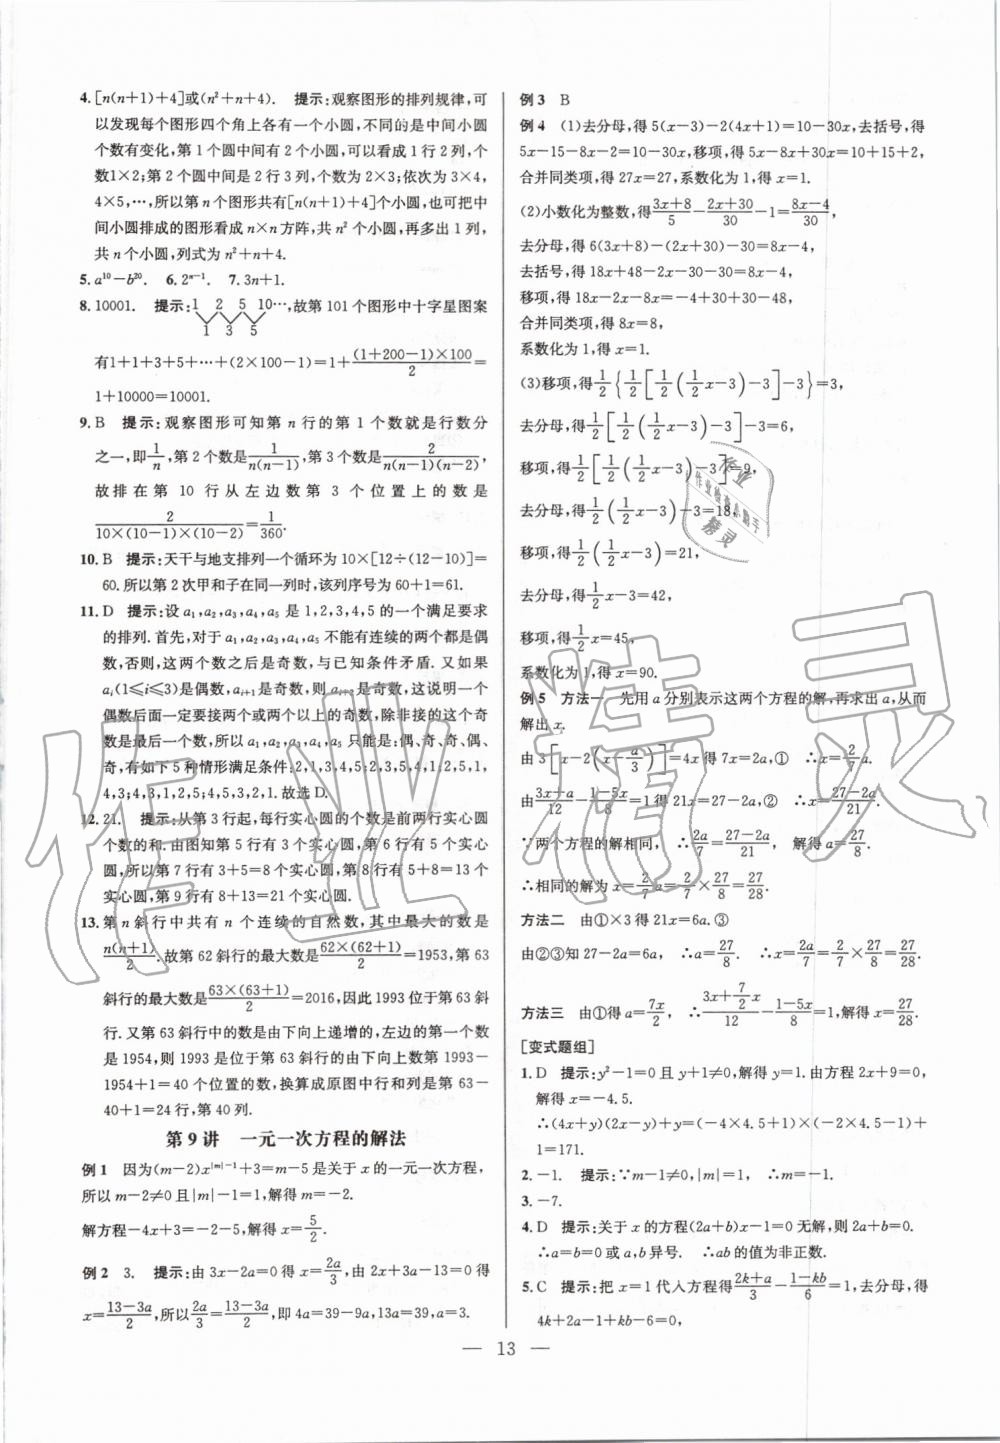 4.[n(n+1)+4]或(n²+n+4). 提示:观察图形的排列规律,可
以发现每个图形四个角上各有一个小圆,不同的是中间小圆
个数有变化,第1个圆中间有2个小圆,可以看成1行2列,个
数1×2;第2个圆中间是2行3列,个数是2×3;依次为3×4,
4×5,…,所以第n个图形共有[n(n+1)+4]个小圆,也可把中
间小圆排成的图形看成n×n方阵,共n²个小圆,再多出1列,
共n个小圆,列式为n²+n+4.
5.a¹⁰-b²⁰. 6.2ⁿ⁻¹. 7.3n+1.
8.10001. 提示:1 2 5 10…,故第101个图形中十字星图案
1 3 5
有1+1+3+5+…+(2×100-1)=1+(1+200-1)×100/2=
1+10000=10001.
9.B 提示:观察图形可知第n行的第1个数就是行数分
之一,即1/n,第2个数是1/n(n-1),第3个数是2/n(n-1)(n-2),
故排在第10行从左边数第3个位置上的数是
2/10×(10-1)×(10-2)=1/360.
10.B 提示:天干与地支排列一个循环为10×[12÷(12-10)]=
60.所以第2次甲和子在同一列时,该列序号为60+1=61.
11.D 提示:设a₁,a₂,a₃,a₄,a₅是1,2,3,4,5的一个满足要求
的排列.首先,对于a₁,a₂,a₃,a₄,a₅不能有连续的两个都是偶
数,否则,这两个数之后是奇数,与已知条件矛盾.又如果
aᵢ(1≤i≤3)是偶数,aᵢ₊₁是奇数,则aᵢ₊₂是奇数,这说明一个
偶数后面一定要接两个或两个以上的奇数,除非接的这个奇
数是最后一个数,所以a₁,a₂,a₃,a₄,a₅只能是:偶、奇、奇、偶、
奇,有如下5种情形满足条件:2,1,3,4,5;2,3,5,4,1;2,5,1,
4,3;4,3,1,2,5;4,5,3,2,1.故选D.
12.21. 提示:从第3行起,每行实心圆的个数是前两行实心圆
个数的和.由图知第5行有3个实心圆,第6行有5个实心
圆,所以第7行有3+5=8个实心圆,第8行有5+8=13个
实心圆,第9行有8+13=21个实心圆.
13.第n斜行中共有n个连续的自然数,其中最大的数是
n(n+1)/2.故第62斜行的最大数是62×(62+1)/2=1953,第63
斜行的最大数是63×(63+1)/2=2016,因此1993位于第63斜
行.又第63斜行中的数是由下向上递增的,左边的第一个数
是1954,则1993是位于第63斜行的由下向上数第1993-
1954+1=40个位置的数,换算成原图中行和列是第63-
40+1=24行,第40列.
第9讲 一元一次方程的解法
例1 因为(m-2)x^|m|-1+3=m-5是关于x的一元一次方程,
所以m-2≠0且|m|-1=1,解得m=-2.
解方程-4x+3=-2-5,解得x=5/2.
例2 3. 提示:由3x-2a=0得x=2a/3,由2x+3a-13=0得
x=13-3a/2,所以2a/3=13-3a/2,即4a=39-9a,13a=39,a=3.
例3 B
例4 (1)去分母,得5(x-3)-2(4x+1)=10-30x,去括号,得
5x-15-8x-2=10-30x,移项,得5x-8x+30x=10+15+2,
合并同类项,得27x=27,系数化为1,得x=1.
(2)小数化为整数,得3x+8/5-2x+30/30-1=8x-4/30,
去分母,得6(3x+8)-(2x+30)-30=8x-4,
去括号,得18x+48-2x-30-30=8x-4,
移项,得18x-2x-8x=-4+30+30-48,
合并同类项,得8x=8,
系数化为1,得x=1.
(3)移项,得1/2{1/2[1/2(1/2x-3)-3]-3}=3,
去分母,得1/2[1/2(1/2x-3)-3]-3=6,
移项,得1/2[1/2(1/2x-3)-3]=9,
去分母,得1/2(1/2x-3)-3=18,
移项,得1/2(1/2x-3)=21,
去分母,得1/2x-3=42,
移项,得1/2x=45,
系数化为1,得x=90.
例5 方法一 先用a分别表示这两个方程的解,再求出a,从而
解出x.
由3[x-2(x-a/3)]=4x得7x=2a,① ∴x=2/7a.
由3x+a/12-1-5x/8=1得21x=27-2a,② ∴x=27-2a/21.
∵两个方程的解相同, ∴2a/7=27-2a/21, 解得a=27/8.
∴相同的解为x=2/7a=2/7×27/8=27/28.
方法二 由①×3得21x=6a.③
由②③知27-2a=6a, ∴a=27/8. ∴x=2a/7=2/7×27/8=27/28.
方法三 由①得a=7x/2, ∴3x+7/2x/12-1-5x/8=1,解得x=27/28.
[变式题组]
1.D 提示:y²-1=0且y+1≠0,解得y=1.由方程2x+9=0,
解得x=-4.5.
∴(4x+y)(2x-y)=(-4.5×4+1)×(-2×4.5-
1)=171.
2.-1. 提示:∵m-1≠0,|m|=1, ∴m=-1.
3.-7.
4.D 提示:关于x的方程(2a+b)x-1=0无解,则2a+b=0.
∴a=b=0或a,b异号. ∴ab的值为非正数.
5.C 提示:把x=1代入方程得2k+a/3-1-kb/6=1,去分母,得
4k+2a-1+kb-6=0,
— 13 —
作业精灵
作业
作业检查小助手
精灵